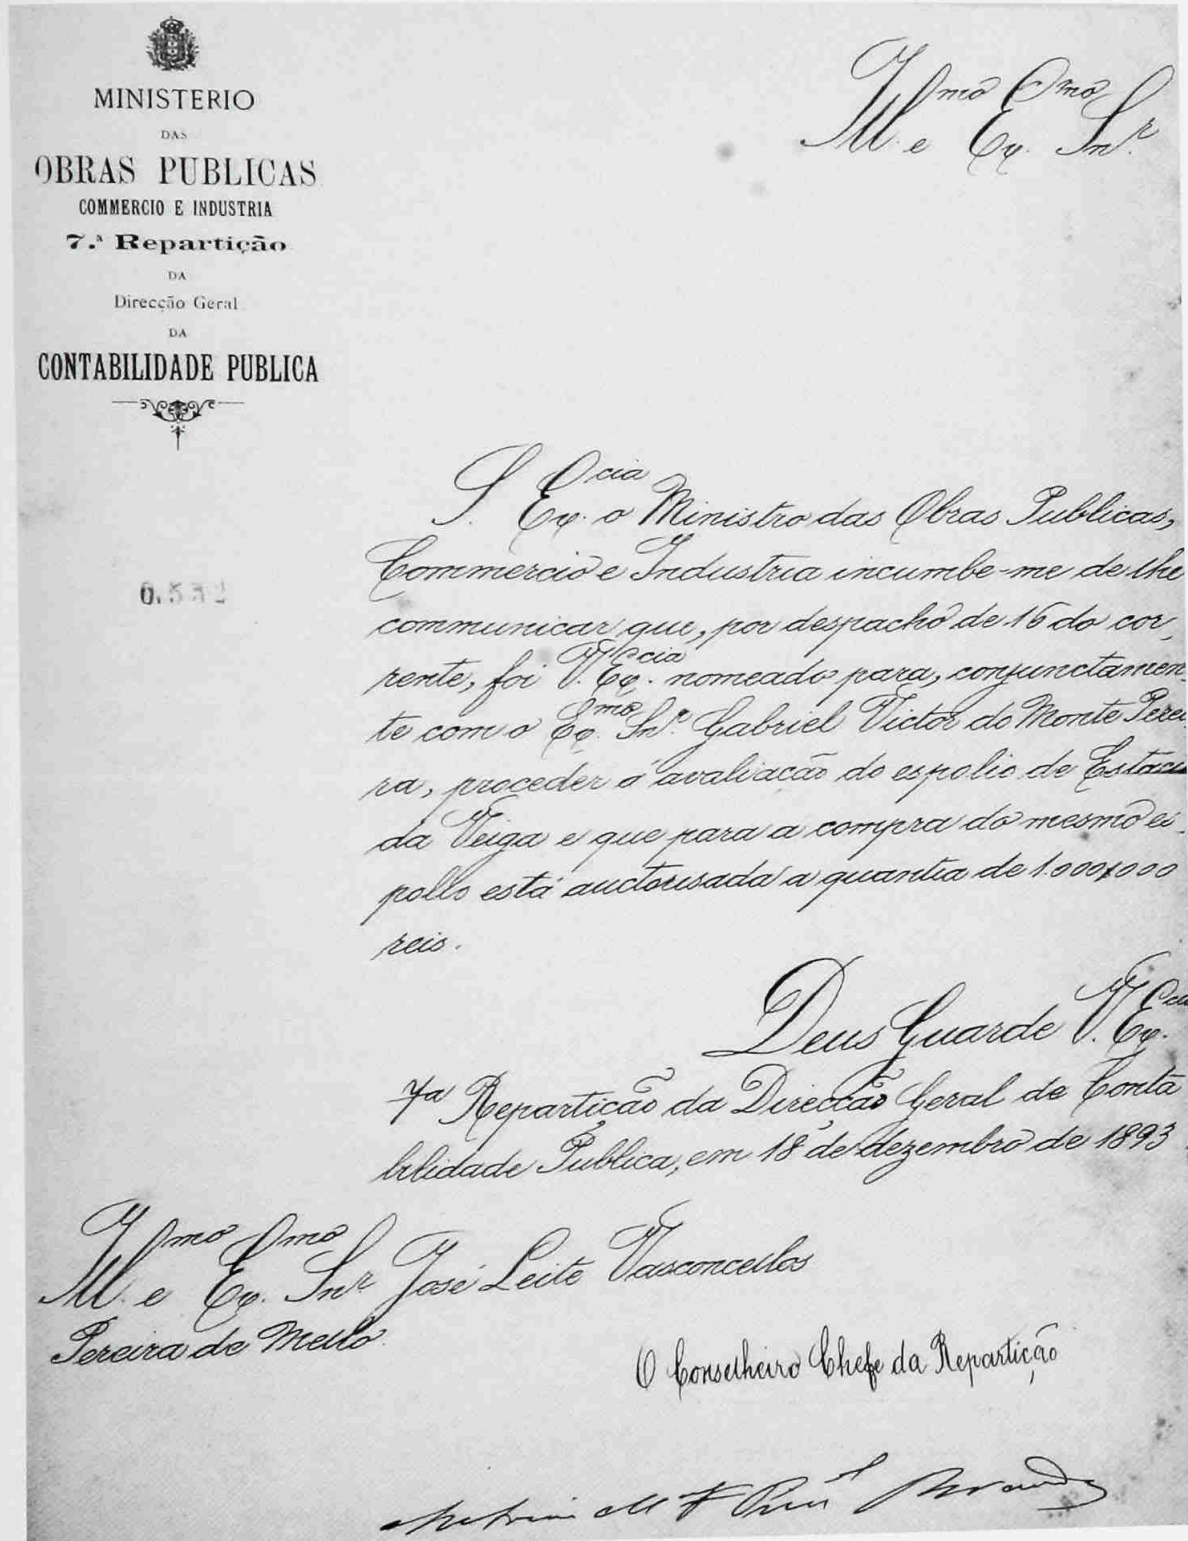 MINISTERIO
DAS
OBRAS PUBLICAS
COMMERCIO E INDUSTRIA
7.ª Repartição
DA
Direcção Geral
DA
CONTABILIDADE PUBLICA
Ill.mo e Ex.mo Snr.
S. Ex.cia o Ministro das Obras Publicas,
Commercio e Industria incumbe-me de lhe
communicar que, por despacho de 16 do cor-
rente, foi V. Ex.cia nomeado para, conjunctamen-
te com o Ex.mo Snr. Gabriel Victor do Monte Perei
ra, proceder á avaliação do espolio de Estacio
da Veiga e que para a compra do mesmo es-
polio está auctorisada a quantia de 1.000$000
reis.
Deus Guarde V. Ex.cia
7a Repartição da Direcção Geral de Conta
bilidade Publica, em 18 de dezembro de 1893
Ill.mo e Ex.mo Snr. José Leite Vasconcellos
Pereira de Mello.
O Conselheiro Chefe da Repartição